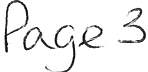 Page 3